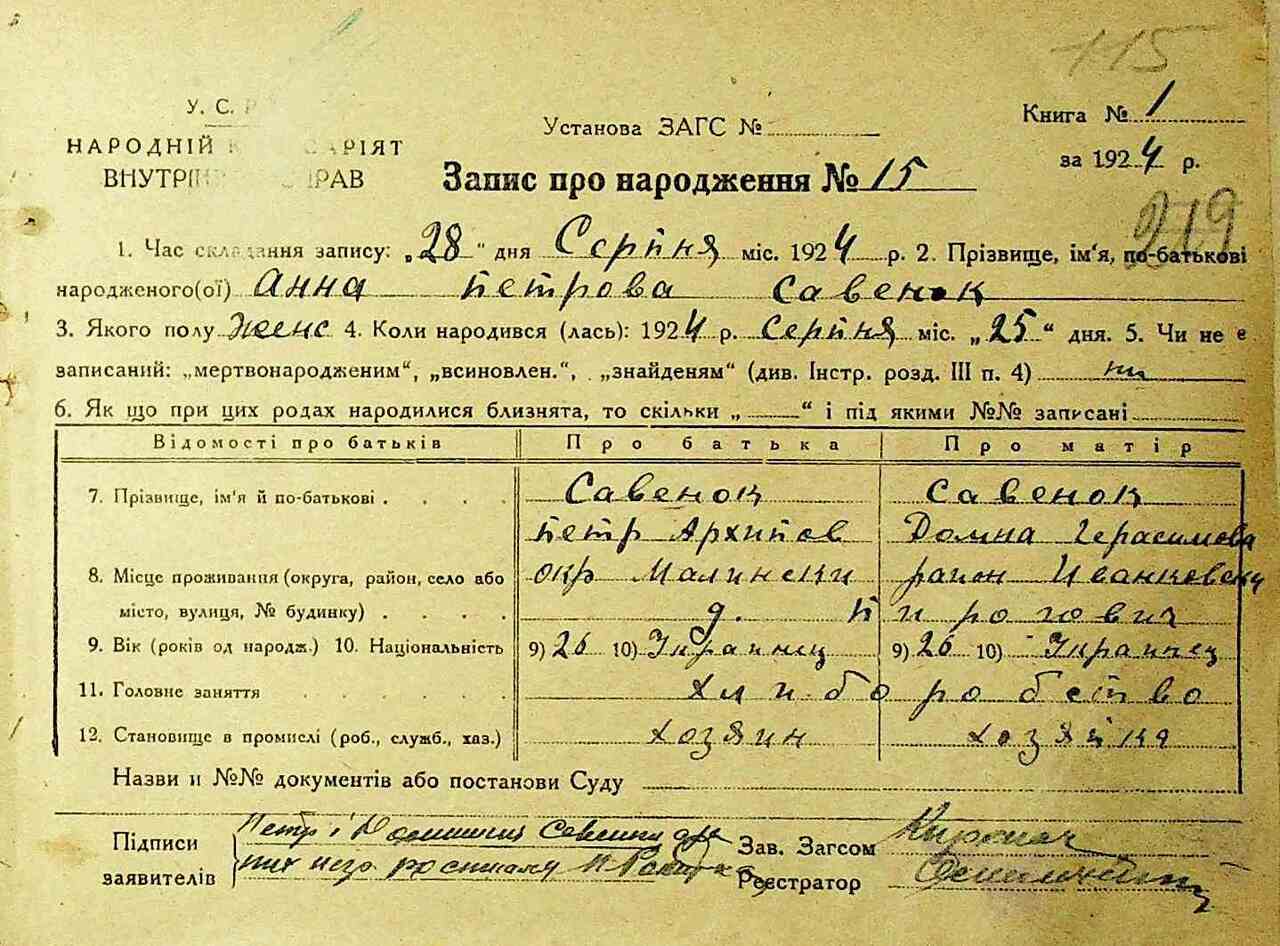 115
У. С. Р
НАРОДНІЙ К САРІЯТ
ВНУТРІШ СПРАВ
Установа ЗАГС №
Книга № 1
за 1924 р.
Запис про народження № 15
219
1. Час складання запису: „28" дня Серпня міс. 1924 р. 2. Прізвище, ім'я, по-батькові
народженого(ої) Анна Петрова Савенок
3. Якого полу женс 4. Коли народився (лась): 1924 р. Серпня міс. „25" дня. 5. Чи не є
записаний: „мертвонародженим", „всиновлен.", „знайденям" (див. Інстр. розд. III п. 4) ни
6. Як що при цих родах народилися близнята, то скільки „ " і під якими №№ записані
Відомості про батьків Про батька Про матір
7. Прізвище, ім'я й по-батькові . . . . Савенок Савенок
Петр Архипов Домна Герасимова
8. Місце проживання (округа, район, село або окр Малински район Иванковски
місто, вулиця, № будинку) . . . . д. Пирогович
9. Вік (років од народж.) 10. Національність 9) 26 10) Украинец 9) 26 10) Украинец
11. Головне заняття . . . . . хлиборобство
12. Становище в промислі (роб., служб., хаз.) хозяин хозяйка
Назви и №№ документів або постанови Суду
Підписи Петр і Савенки Зав. Загсом
заявителів них Реєстратор